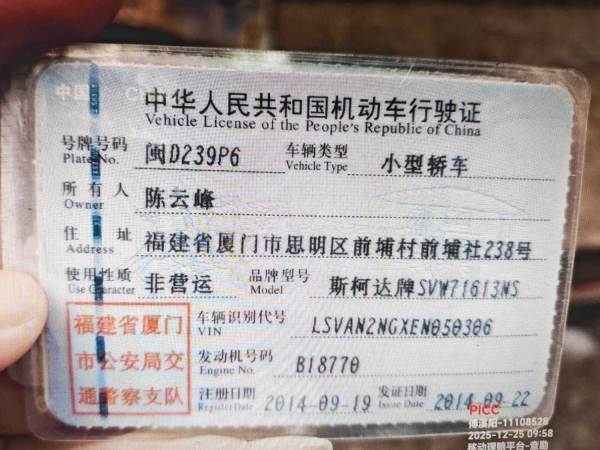 中华人民共和国机动车行驶证
Vehicle License of the People's Republic of China
号牌号码 闽D239P6 车辆类型 小型轿车
Plate No. Vehicle Type
所有人 陈云峰
Owner
住址 福建省厦门市思明区前埔村前埔社238号
Address
使用性质 非营运 品牌型号 斯柯达牌SVW71613NS
Use Character Model
福建省厦门
市公安局交
通警察支队
车辆识别代号 LSVAN2NGXEN050306
VIN
发动机号码 B18770
Engine No.
注册日期 2014-09-19 发证日期 2014-09-22
Register Date Issue Date
PICC
傅溪阳-11108528
2025-12-25 09:58
移动理赔平台-查勘